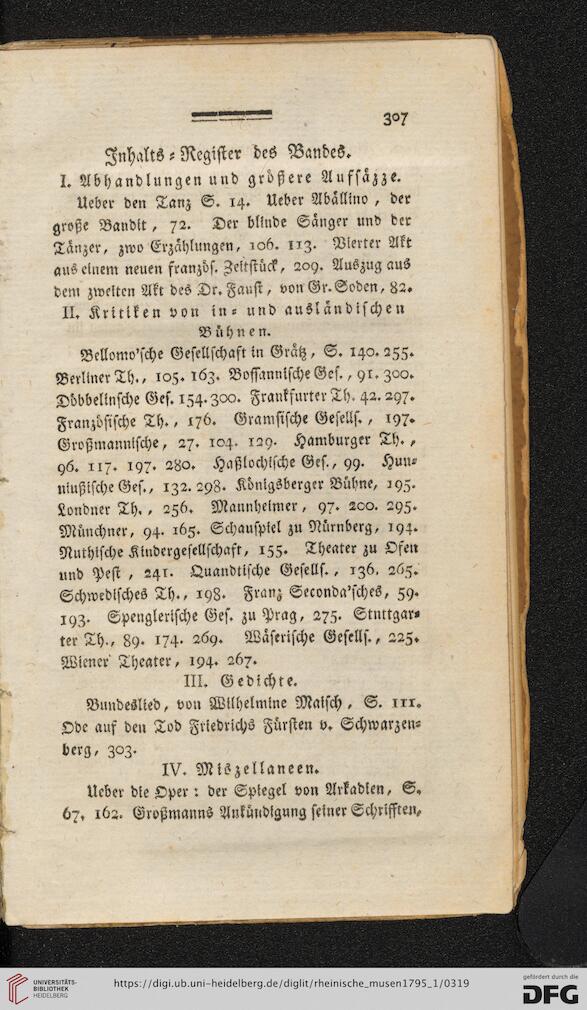 307
Inhalts-Register des Bandes.
I. Abhandlungen und größere Aufsäzze.
Ueber den Tanz S. 14. Ueber Abällino, der
große Bandit, 72. Der blinde Sänger und der
Tänzer, zwo Erzählungen, 106. 113. Vierter Akt
aus einem neuen französ. Zeitstück, 209. Auszug aus
dem zweiten Akt des Dr. Faust, von Gr. Soden, 82.
II. Kritiken von in- und ausländischen
Bühnen.
Bellomo'sche Gesellschaft in Grätz, S. 140. 255.
Berliner Th., 105. 163. Bossannische Ges., 91. 300.
Döbbelinsche Ges. 154. 300. Frankfurter Th. 42. 297.
Französische Th., 176. Gramsische Gesells., 197.
Großmannische, 27. 104. 129. Hamburger Th.,
96. 117. 197. 280. Haßlochische Ges., 99. Hun-
niußische Ges., 132. 298. Königsberger Bühne, 195.
Londner Th., 256. Mannheimer, 97. 200. 295.
Münchner, 94. 165. Schauspiel zu Nürnberg, 194.
Nuthische Kindergesellschaft, 155. Theater zu Ofen
und Pest, 241. Quandtische Gesells., 136. 265.
Schwedisches Th., 198. Franz Seconda'sches, 59.
193. Spenglerische Ges. zu Prag, 275. Stuttgar-
ter Th., 89. 174. 269. Wäserische Gesells., 225.
Wiener Theater, 194. 267.
III. Gedichte.
Bundeslied, von Wilhelmine Maisch, S. 111.
Ode auf den Tod Friedrichs Fürsten v. Schwarzen-
berg, 303.
IV. Miszellaneen.
Ueber die Oper: der Spiegel von Arkadien, S.
67, 162. Großmanns Ankündigung seiner Schrifften,
UNIVERSITÄTS-
BIBLIOTHEK
HEIDELBERG
https://digi.ub.uni-heidelberg.de/diglit/rheinische_musen1795_1/0319
gefördert durch die
DFG